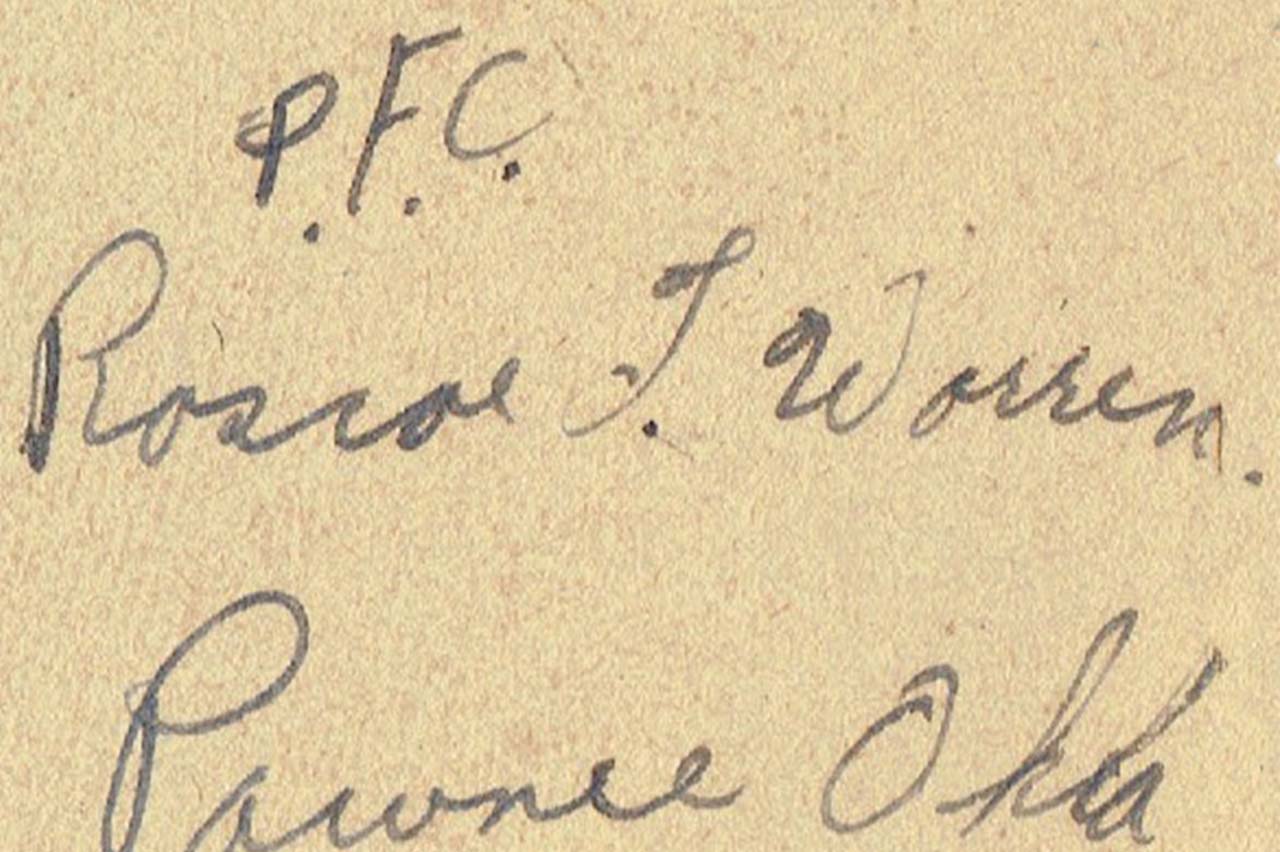 P.F.C.
Roscoe T. Warren.
Pawnee Okla